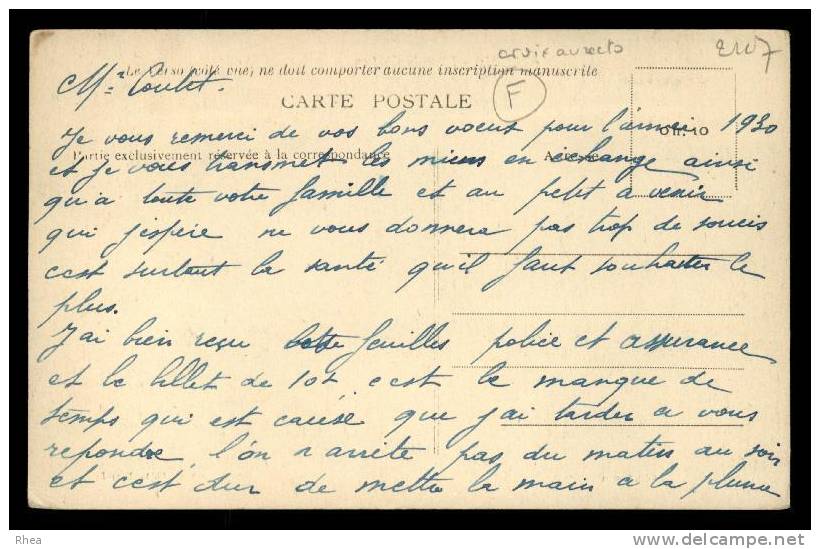 croix au recto
2107
Le Verso (côté vue) ne doit comporter aucune inscription manuscrite
Mr Coulet.
F
CARTE POSTALE
Je vous remerci de vos bons voeux pour l'année 1930
Partie exclusivement réservée à la correspondance
et je vous transmet les miens en échange ainsi
qu'a toute votre famille et au petit a venir
qui j'espère ne vous donnera pas trop de soucis
cest surtout la santé qu'il faut souhaiter le
plus.
J'ai bien reçu feuilles police et assurance
et le billet de 10f cest le manque de
temps qui est cause que j'ai tarder a vous
repondre, l'on n'arrète pas du matin au soir
et cest dur de mettre la main a la plume
Rhea
delcampe.net